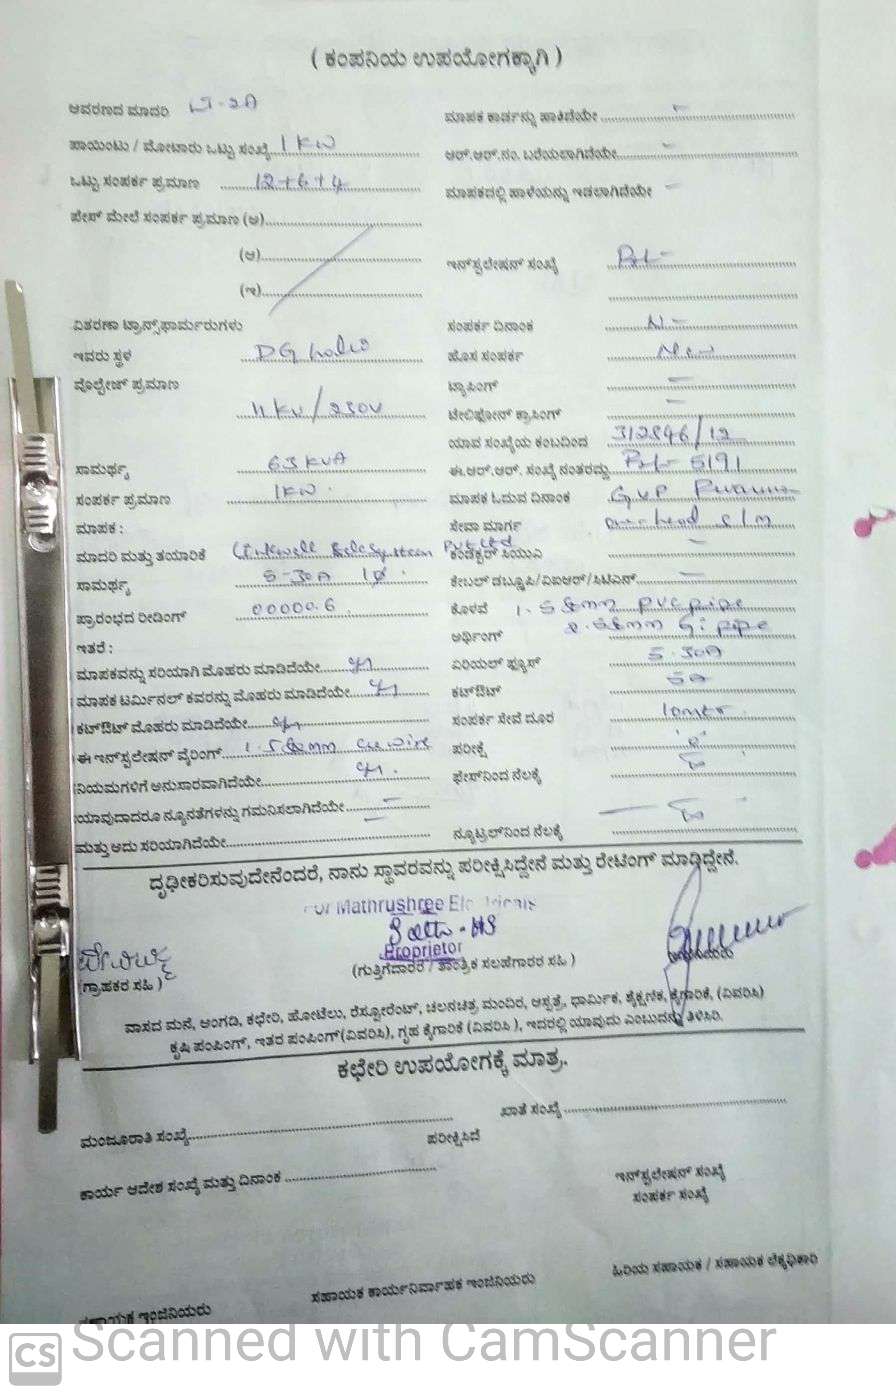 ( ಕಂಪನಿಯ ಉಪಯೋಗಕ್ಕಾಗಿ )
ಆವರಣದ ಮಾದರಿ
ಮಾಪಕ ಕಾರ್ಡನ್ನು ಹಾಕಿದೆಯೇ
ಪಾಯಿಂಟು / ಮೋಟಾರು ಒಟ್ಟು ಸಂಖ್ಯೆ 1 KW
ಆರ್.ಆರ್.ನಂ. ಬರೆಯಲಾಗಿದೆಯೇ
ಒಟ್ಟು ಸಂಪರ್ಕ ಪ್ರಮಾಣ 12+6+4
ಮಾಪಕದಲ್ಲಿ ಹಾಳೆಯನ್ನು ಇಡಲಾಗಿದೆಯೇ
ಫೇಸ್ ಮೇಲೆ ಸಂಪರ್ಕ ಪ್ರಮಾಣ (ಅ)
(ಆ)
ಇನ್‌ಸ್ಟಲೇಷನ್ ಸಂಖ್ಯೆ
(ಇ)
ವಿತರಣಾ ಟ್ರಾನ್ಸ್‌ಫಾರ್ಮರುಗಳು
ಸಂಪರ್ಕ ದಿನಾಂಕ
ಇವರು ಸ್ಥಳ
ಹೊಸ ಸಂಪರ್ಕ New
ವೋಲ್ಟೇಜ್ ಪ್ರಮಾಣ
ಟ್ಯಾಪಿಂಗ್
11 KV / 250V
ಟೆಲಿಫೋನ್ ಕ್ರಾಸಿಂಗ್
ಯಾವ ಸಂಖ್ಯೆಯ ಕಂಬದಿಂದ 312846/12
ಸಾಮರ್ಥ್ಯ 63 KVA
ಈ.ಆರ್.ಆರ್. ಸಂಖ್ಯೆ ನಂತರದ್ದು 5191
ಸಂಪರ್ಕ ಪ್ರಮಾಣ 1KW.
ಮಾಪಕ ಓದುವ ದಿನಾಂಕ
ಮಾಪಕ :
ಸೇವಾ ಮಾರ್ಗ over head s/m
ಮಾದರಿ ಮತ್ತು ತಯಾರಿಕೆ Linkwell Telesystem Pvt Ltd
ಕಂಡೆಕ್ಟರ್ ಸಿಯುವಿ
ಸಾಮರ್ಥ್ಯ 5-30A 1Ø.
ಕೇಬಲ್ ಡಬ್ಲೂಪಿ/ವಿಐಆರ್/ಸಿಟಿಎಸ್
ಪ್ರಾರಂಭದ ರೀಡಿಂಗ್ 00000.6
ಕೊಳವೆ PVC pipe
ಇತರೆ :
ಅರ್ಥಿಂಗ್ Gi pipe
ಮಾಪಕವನ್ನು ಸರಿಯಾಗಿ ಮೊಹರು ಮಾಡಿದೆಯೇ
ಏರಿಯಲ್ ಫ್ಯೂಸ್ 5.30A
ಮಾಪಕ ಟರ್ಮಿನಲ್ ಕವರನ್ನು ಮೊಹರು ಮಾಡಿದೆಯೇ
ಕಟ್‌ಔಟ್ 5A
ಕಟ್‌ಔಟ್ ಮೊಹರು ಮಾಡಿದೆಯೇ
ಸಂಪರ್ಕ ಸೇವೆ ದೂರ 10mtr.
ಈ ಇನ್‌ಸ್ಟಲೇಷನ್ ವೈರಿಂಗ್ wire
ಪರೀಕ್ಷೆ
ನಿಯಮಗಳಿಗೆ ಅನುಸಾರವಾಗಿದೆಯೇ
ಫೇಸ್‌ನಿಂದ ನೆಲಕ್ಕೆ
ಯಾವುದಾದರೂ ನ್ಯೂನತೆಗಳನ್ನು ಗಮನಿಸಲಾಗಿದೆಯೇ
ಮತ್ತು ಅದು ಸರಿಯಾಗಿದೆಯೇ
ನ್ಯೂಟ್ರಲ್‌ನಿಂದ ನೆಲಕ್ಕೆ
ದೃಢೀಕರಿಸುವುದೇನೆಂದರೆ, ನಾನು ಸ್ಥಾವರವನ್ನು ಪರೀಕ್ಷಿಸಿದ್ದೇನೆ ಮತ್ತು ರೇಟಿಂಗ್ ಮಾಡಿದ್ದೇನೆ.
For Mathrushree Electricals
Proprietor
(ಗ್ರಾಹಕರ ಸಹಿ )
(ಗುತ್ತಿಗೆದಾರರ / ತಾಂತ್ರಿಕ ಸಲಹೆಗಾರರ ಸಹಿ )
ವಾಸದ ಮನೆ, ಅಂಗಡಿ, ಕಛೇರಿ, ಹೋಟೆಲು, ರೆಸ್ಟೋರೆಂಟ್, ಚಲನಚಿತ್ರ ಮಂದಿರ, ಆಸ್ಪತ್ರೆ, ಧಾರ್ಮಿಕ, ಶೈಕ್ಷಣಿಕ, ಕೈಗಾರಿಕೆ, (ವಿವರಿಸಿ)
ಕೃಷಿ ಪಂಪಿಂಗ್, ಇತರ ಪಂಪಿಂಗ್(ವಿವರಿಸಿ), ಗೃಹ ಕೈಗಾರಿಕೆ (ವಿವರಿಸಿ ), ಇದರಲ್ಲಿ ಯಾವುದು ಎಂಬುದನ್ನು ತಿಳಿಸಿರಿ.
ಕಛೇರಿ ಉಪಯೋಗಕ್ಕೆ ಮಾತ್ರ.
ಖಾತೆ ಸಂಖ್ಯೆ
ಮಂಜೂರಾತಿ ಸಂಖ್ಯೆ
ಪರೀಕ್ಷಿಸಿದೆ
ಕಾರ್ಯ ಆದೇಶ ಸಂಖ್ಯೆ ಮತ್ತು ದಿನಾಂಕ
ಇನ್‌ಸ್ಟಲೇಷನ್ ಸಂಖ್ಯೆ
ಸಂಪರ್ಕ ಸಂಖ್ಯೆ
ಹಿರಿಯ ಸಹಾಯಕ / ಸಹಾಯಕ ಲೆಕ್ಕಾಧಿಕಾರಿ
ಸಹಾಯಕ ಕಾರ್ಯನಿರ್ವಾಹಕ ಇಂಜಿನಿಯರು
ಸಹಾಯಕ ಇಂಜಿನಿಯರು
CS Scanned with CamScanner